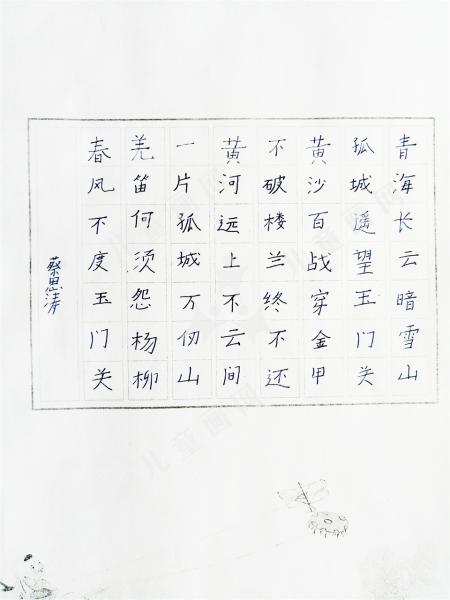 青海长云暗雪山
孤城遥望玉门关
黄沙百战穿金甲
不破楼兰终不还
黄河远上不云间
一片孤城万仞山
羌笛何须怨杨柳
春风不度玉门关
蔡思涛